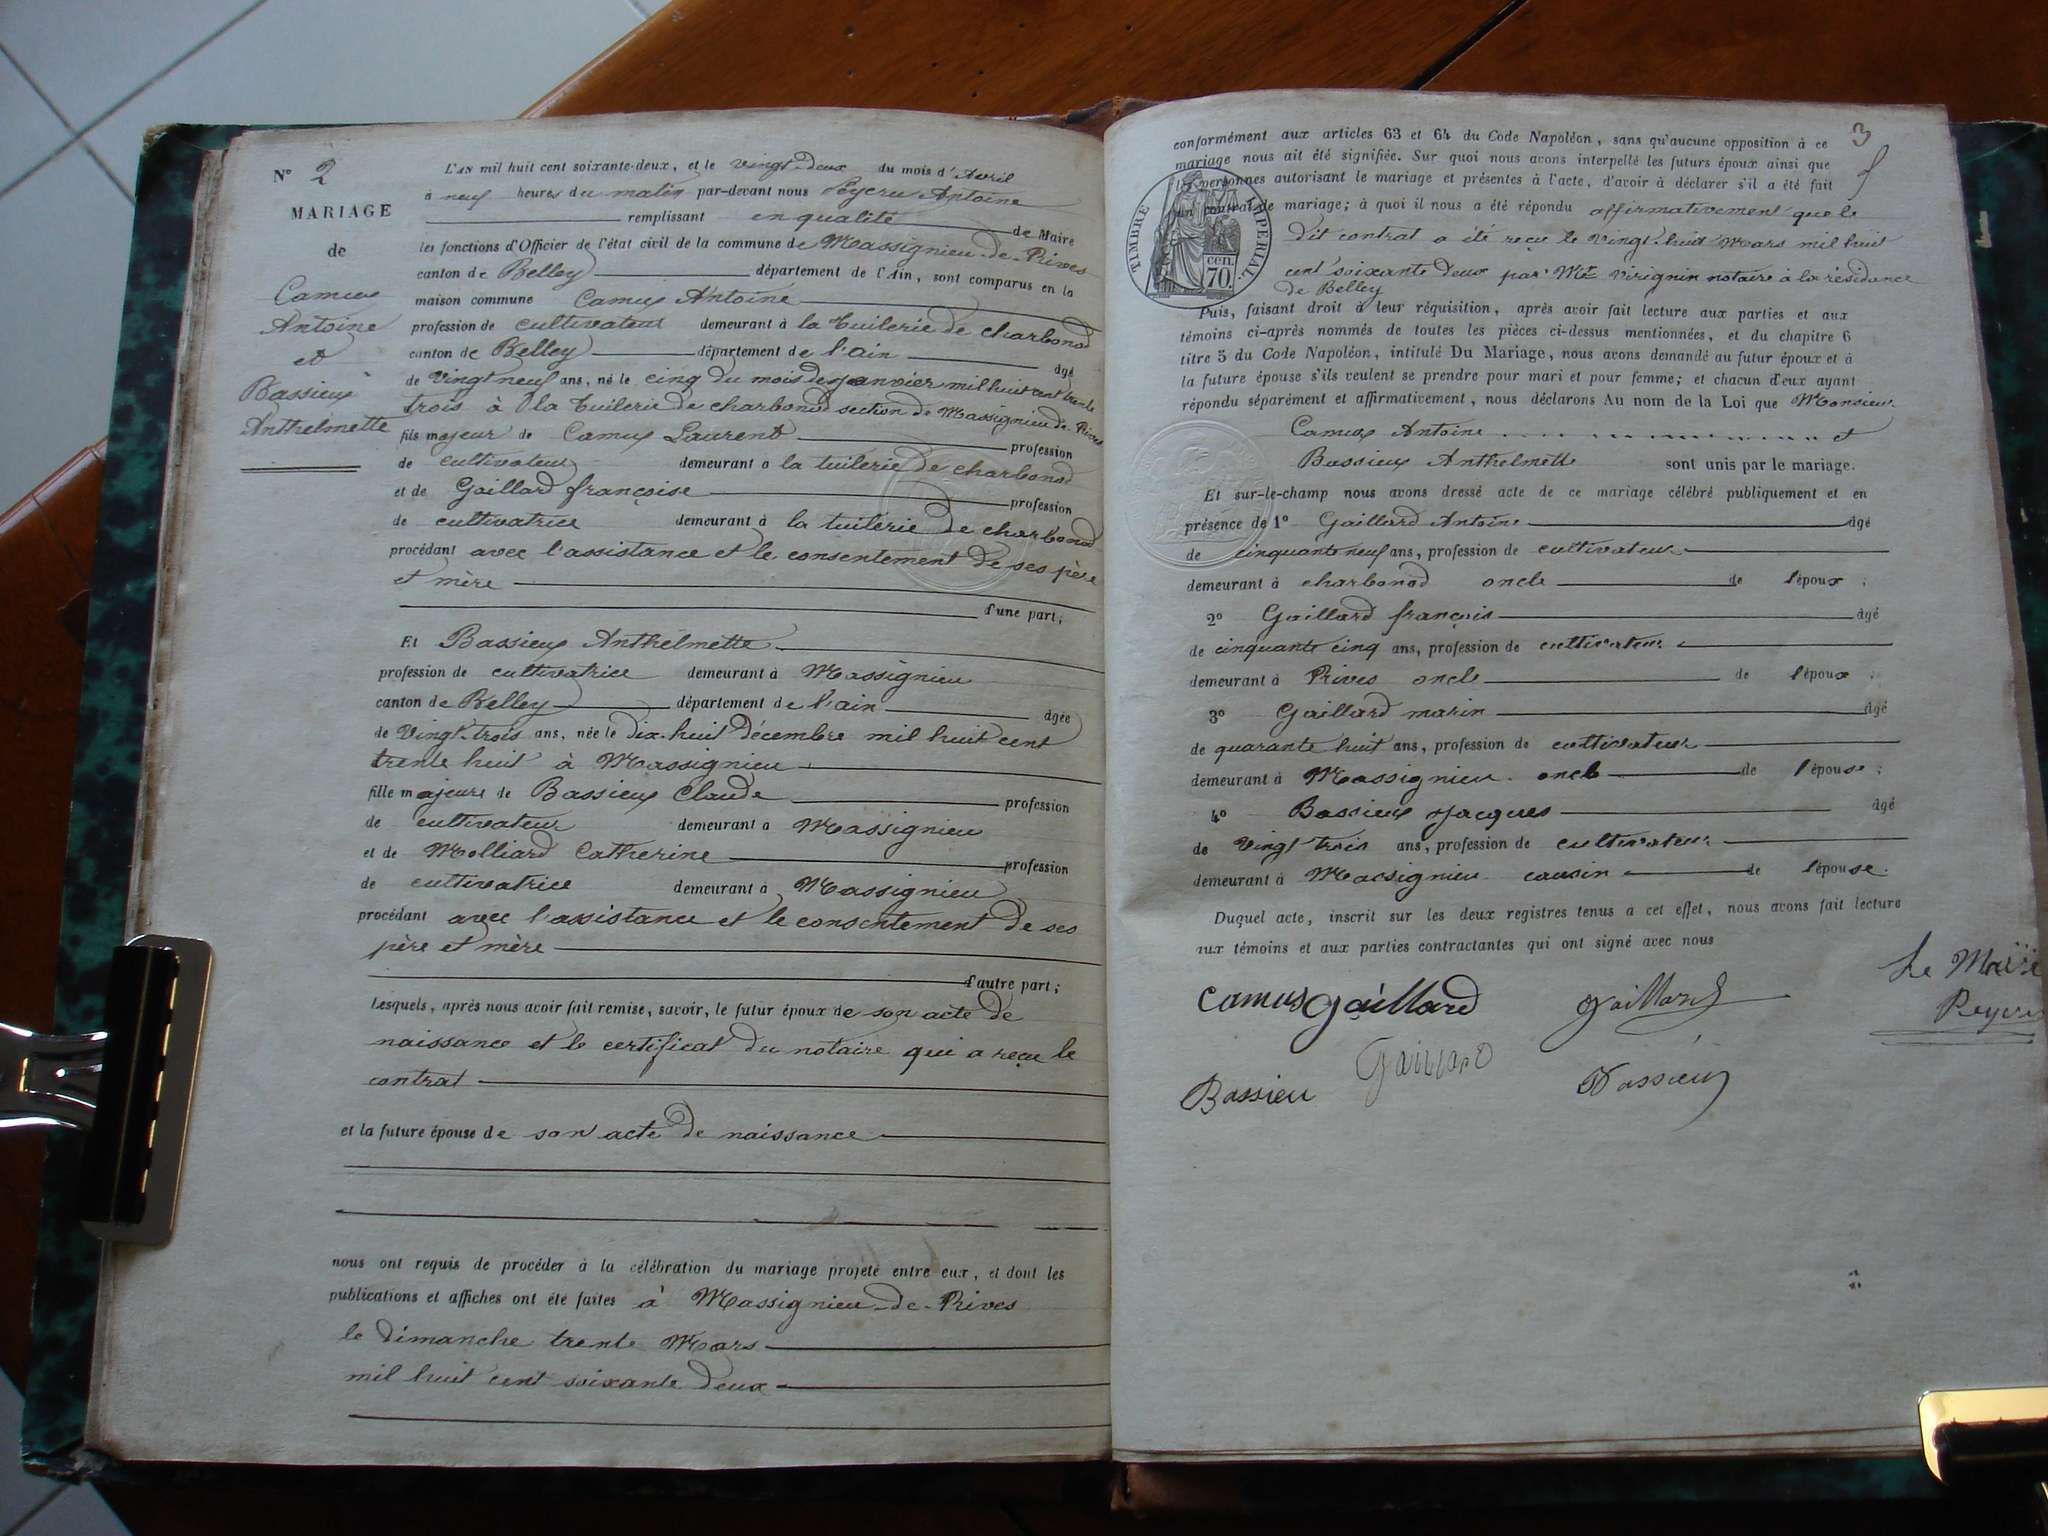 N° 2
MARIAGE
de
Camus
Antoine
et
Bassieux
Anthelmette
L'AN mil huit cent soixante-deux, et le vingt-deux du mois d'Avril
à neuf heures du matin par-devant nous Peycru Antoine
remplissant en qualité de Maire
les fonctions d'Officier de l'état civil de la commune de Massignieu-de-Rives
canton de Belley département de l'Ain, sont comparus en la
maison commune Camus Antoine
profession de cultivateur demeurant à la tuilerie de charbonod
canton de Belley département de l'ain âgé
de vingt neuf ans, né le cinq du mois de janvier mil huit cent trente
trois à la tuilerie de charbonod section de Massignieu-de-Rives
fils majeur de Camus Laurent profession
de cultivateur demeurant à la tuilerie de charbonod
et de Gaillard françoise profession
de cultivatrice demeurant à la tuilerie de charbonod
procédant avec l'assistance et le consentement de ses père
et mère
d'une part;
Et Bassieux Anthelmette
profession de cultivatrice demeurant à Massignieu
canton de Belley département de l'ain âgée
de vingt-trois ans, née le dix-huit décembre mil huit cent
trente huit à Massignieu
fille majeure de Bassieux Claude profession
de cultivateur demeurant à Massignieu
et de Molliard Catherine profession
de cultivatrice demeurant à Massignieu
procédant avec l'assistance et le consentement de ses
père et mère
d'autre part;
Lesquels, après nous avoir fait remise, savoir, le futur époux de son acte de
naissance et le certificat du notaire qui a reçu le
contrat
et la future épouse de son acte de naissance
nous ont requis de procéder à la célébration du mariage projeté entre eux, et dont les
publications et affiches ont été faites à Massignieu-de-Rives
le dimanche trente Mars
mil huit cent soixante deux
3
conformément aux articles 63 et 64 du Code Napoléon, sans qu'aucune opposition à ce
mariage nous ait été signifiée. Sur quoi nous avons interpellé les futurs époux ainsi que
les personnes autorisant le mariage et présentes à l'acte, d'avoir à déclarer s'il a été fait
un contrat de mariage; à quoi il nous a été répondu affirmativement que le
dit contrat a été reçu le vingt-huit Mars mil huit
cent soixante deux par Mt Virignin notaire à la résidence
de Belley
TIMBRE IMPERIAL
70 cen.
Puis, faisant droit à leur réquisition, après avoir fait lecture aux parties et aux
témoins ci-après nommés de toutes les pièces ci-dessus mentionnées, et du chapitre 6
titre 5 du Code Napoléon, intitulé Du Mariage, nous avons demandé au futur époux et à
la future épouse s'ils veulent se prendre pour mari et pour femme; et chacun d'eux ayant
répondu séparément et affirmativement, nous déclarons Au nom de la Loi que Monsieur
Camus Antoine et
Bassieux Anthelmette sont unis par le mariage.
Et sur-le-champ nous avons dressé acte de ce mariage célébré publiquement et en
présence de 1° Gaillard Antoine âgé
de cinquante neuf ans, profession de cultivateur
demeurant à charbonod oncle de l'époux;
2° Gaillard françois âgé
de cinquante cinq ans, profession de cultivateur
demeurant à Rives oncle de l'époux;
3° Gaillard marin âgé
de quarante huit ans, profession de cultivateur
demeurant à Massignieu oncle de l'épouse;
4° Bassieux Jacques âgé
de vingt trois ans, profession de cultivateur
demeurant à Massignieu cousin de l'épouse.
Duquel acte, inscrit sur les deux registres tenus à cet effet, nous avons fait lecture
aux témoins et aux parties contractantes qui ont signé avec nous
Le Maire
Peycru
camus Gaillard Gaillard
Gaillard
Bassieu Bassieux